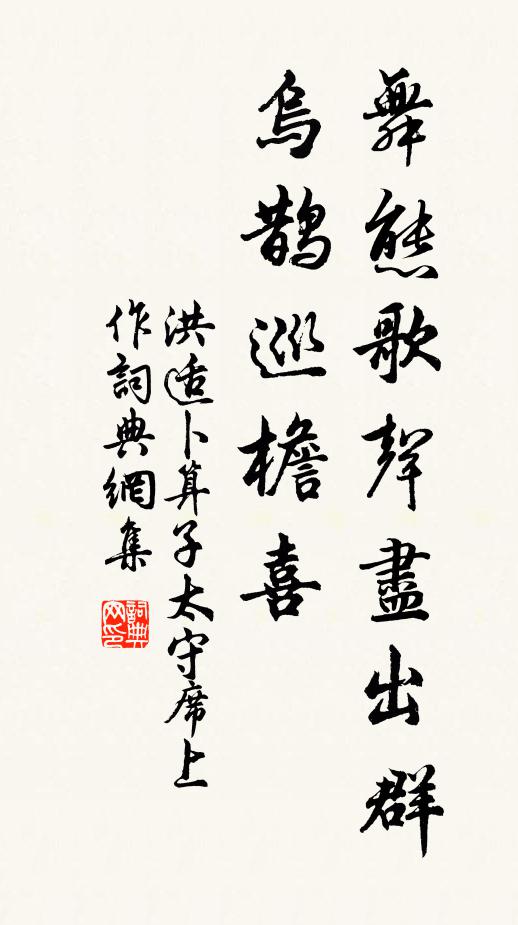 舞態歌聲盡出群
烏鵲巡檐喜
洪适卜算子太守席上
作詞典網集
詞典网印